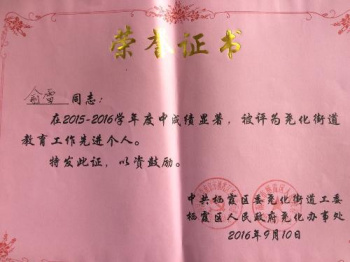 荣誉证书
俞雪 同志：
在2015-2016学年度中成绩显著，被评为尧化街道
教育工作先进个人。
特发此证，以资鼓励。
中共栖霞区委尧化街道工委
栖霞区人民政府尧化办事处
2016年9月10日